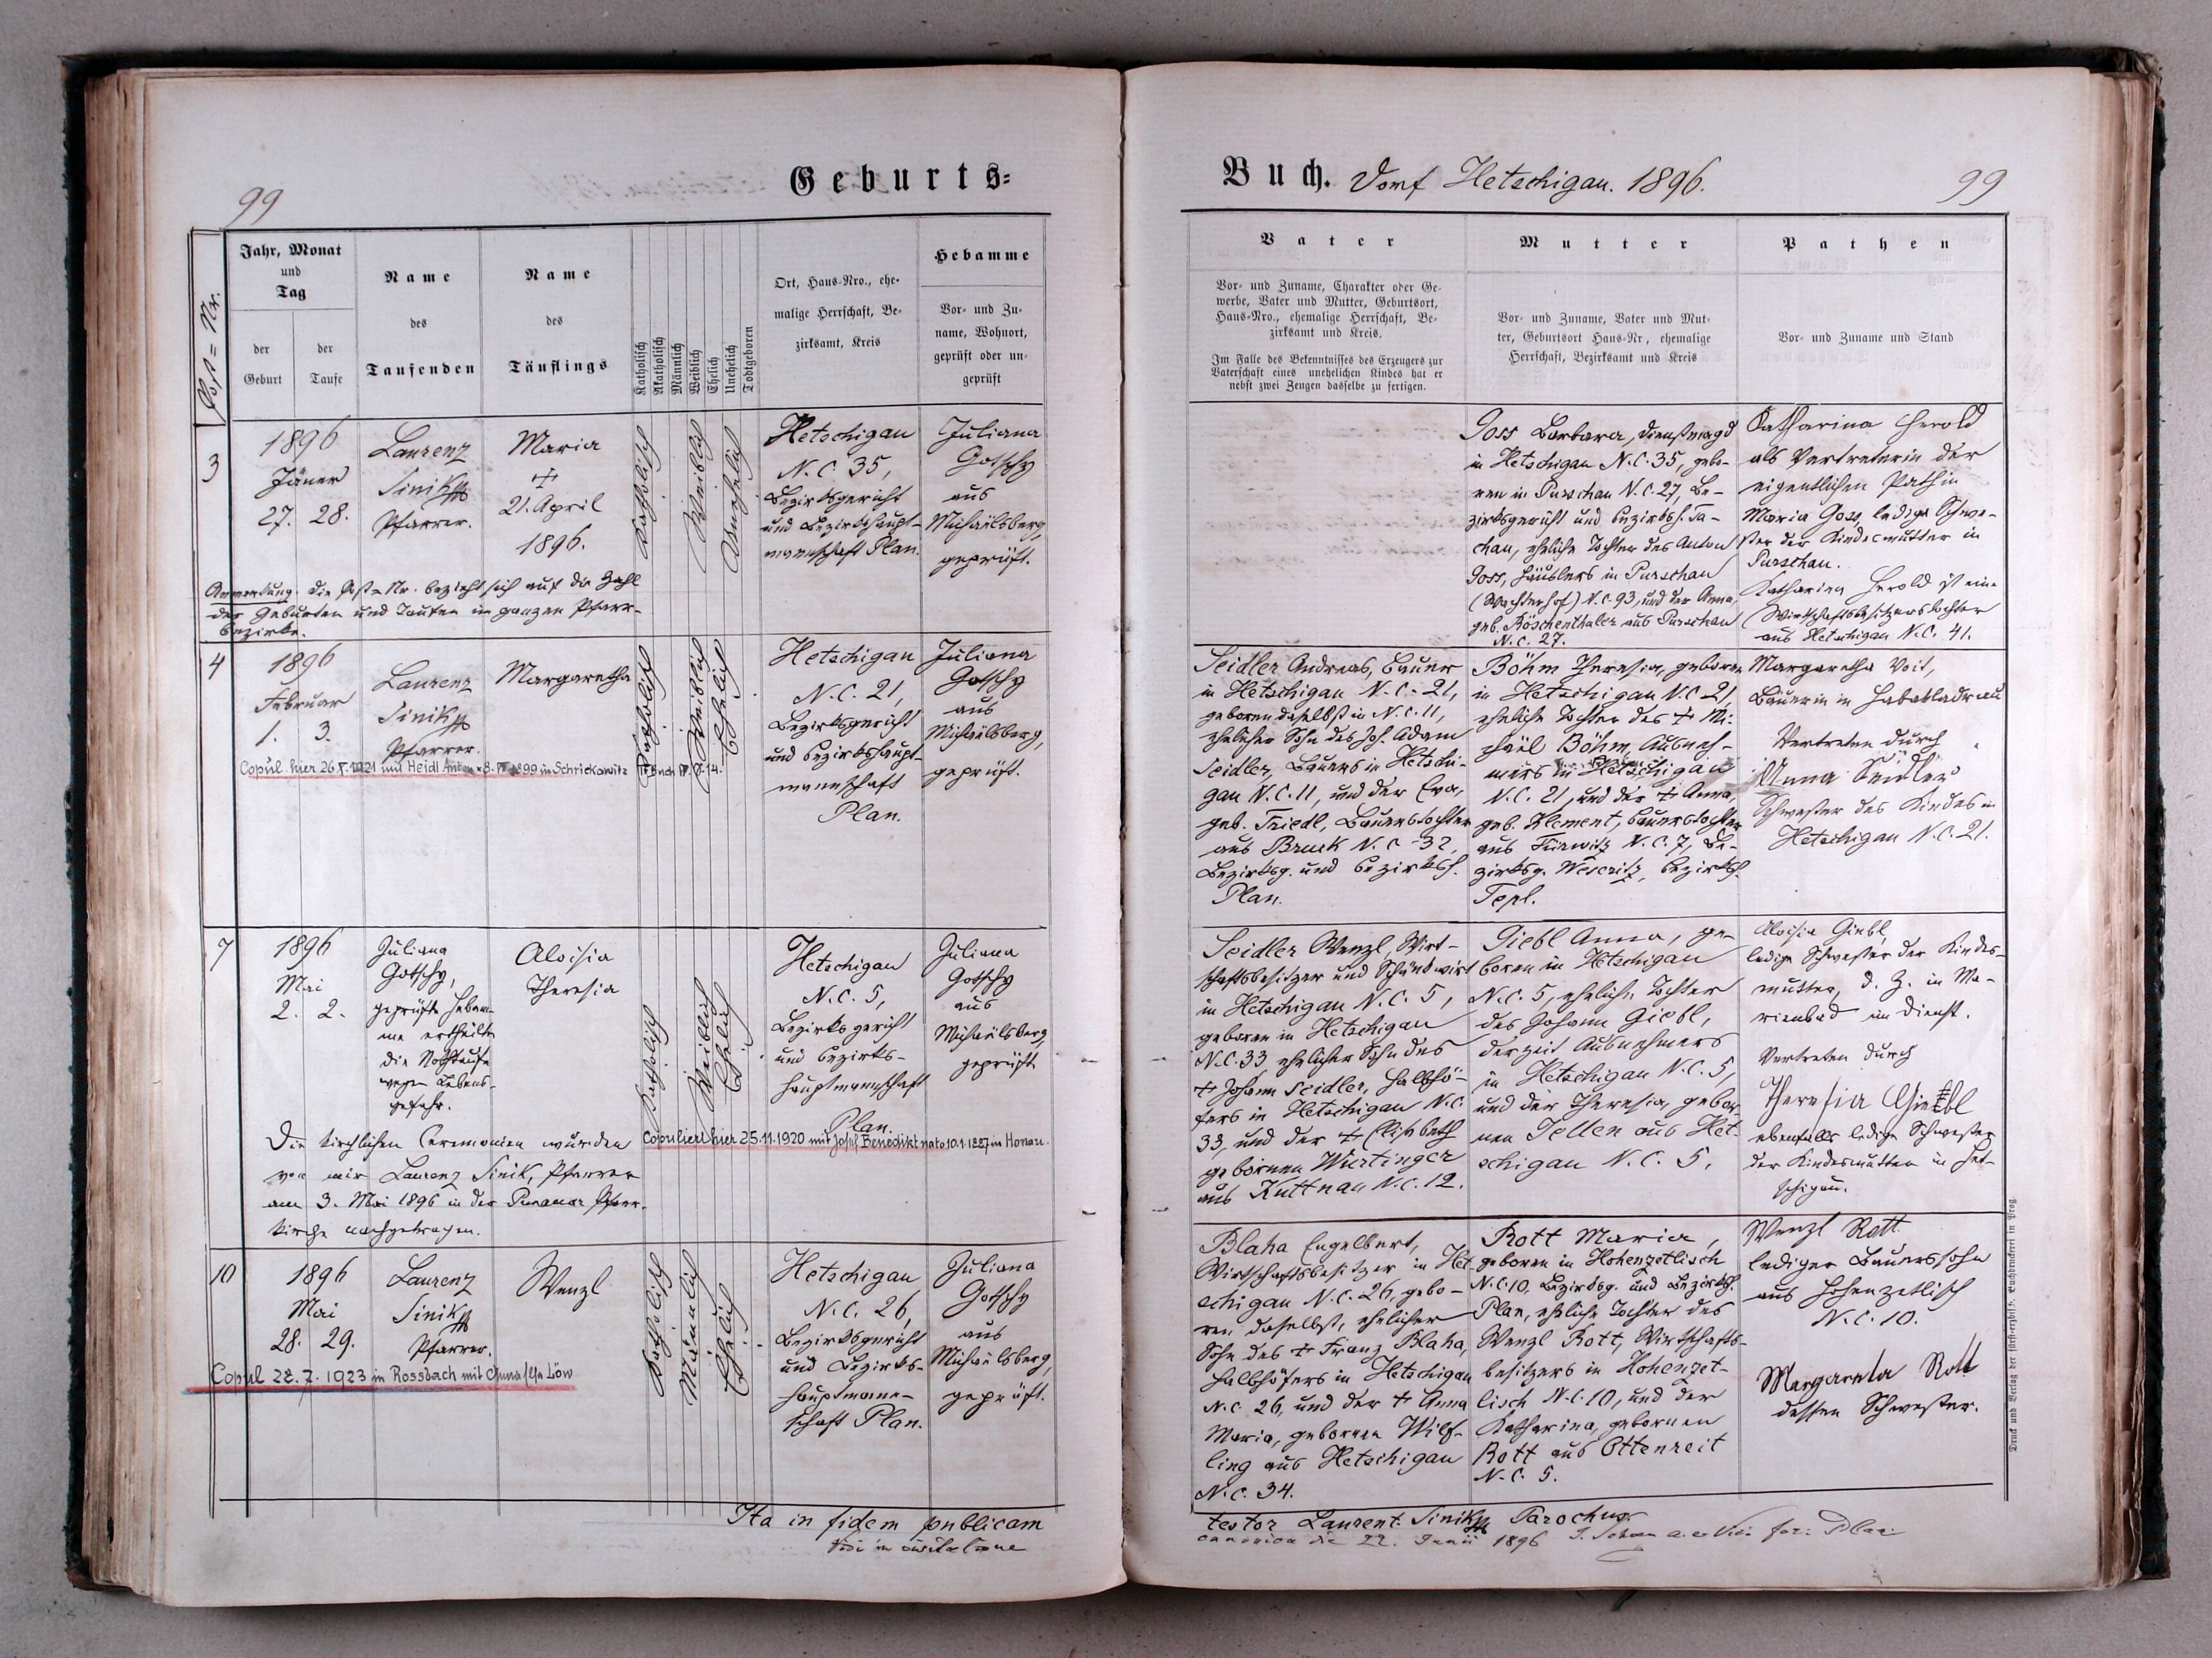 99
Geburts-
Post-Nr.
Jahr, Monat
und
Tag
der
Geburt
der
Taufe
Name
des
Taufenden
Name
des
Täuflings
Katholisch
Akatholisch
Männlich
Weiblich
Ehelich
Unehelich
Todtgeboren
Ort, Haus-Nro., ehe-
malige Herrschaft, Be-
zirksamt, Kreis
Hebamme
Vor- und Zu-
name, Wohnort,
geprüft oder un-
geprüft
3
1896
Jäner
27. 28.
Laurenz
Sinik
Pfarrer.
Maria
+
21. April
1896.
Katholisch
Weiblich
Unehelich
Hetschigau
N.C. 35,
Bezirksgericht
und Bezirkshaupt-
mannschaft Plan.
Juliana
Gotschy
aus
Michaëlsberg,
geprüft.
Anmerkung. Die Post-Nr. bezieht sich auf die Zahl
der Geburten und Taufen im ganzen Pfarr-
bezirke.
4
1896
Februar
1. 3.
Laurenz
Sinik
Pfarrer.
Margaretha
Katholisch
Weiblich
Ehelich
Hetschigau
N.C. 21,
Bezirksgericht
und Bezirkshaupt-
mannschaft
Plan.
Juliana
Gotschy
aus
Michaëlsberg,
geprüft.
Copul. hier 26.V.1921 mit Heidl Anton 1899 in Schrickowitz
7
1896
Mai
2. 2.
Juliana
Gotschy,
geprüfte Hebam-
me ertheilte
die Nothtaufe
wegen Lebens-
gefahr.
Aloisia
Theresia
Katholisch
Weiblich
Ehelich
Hetschigau
N.C. 5,
Bezirksgericht
und Bezirks-
hauptmannschaft
Plan.
Juliana
Gotschy
aus
Michaëlsberg,
geprüft
Die kirchlichen Ceremonien wurden
von mir Laurenz Sinik, Pfarrer
am 3. Mai 1896 in der Punauer Pfarr-
kirche nachgetragen.
Copuliert hier 25.11.1920 mit Josef Benedikt nato 10.1.1887 in Honau.
10
1896
Mai
28. 29.
Laurenz
Sinik
Pfarrer.
Wenzl
Katholisch
Männlich
Ehelich
Hetschigau
N.C. 26,
Bezirksgericht
und Bezirks-
hauptmann-
schaft Plan.
Juliana
Gotschy
aus
Michaëlsberg,
geprüft.
Copul 28.7.1923 in Rossbach mit Anna Löw
Ita in fidem publicam
Vidi in visitatione
Buch. Dorf Hetschigau. 1896.
99
Vater
Vor- und Zuname, Charakter oder Ge-
werbe, Vater und Mutter, Geburtsort,
Haus-Nro., ehemalige Herrschaft, Be-
zirksamt und Kreis.
Im Falle des Bekenntnisses des Erzeugers zur
Vaterschaft eines unehelichen Kindes hat er
nebst zwei Zeugen dasselbe zu fertigen.
Mutter
Vor- und Zuname, Vater und Mut-
ter, Geburtsort Haus-Nr, ehemalige
Herrschaft, Bezirksamt und Kreis
Pathen
Vor- und Zuname und Stand
Goss Barbara, Dienstmagd
in Hetschigau N.C. 35, gebo-
ren in Purschau N.C. 27, Be-
zirksgericht und Bezirksh. Ta-
chau, eheliche Tochter des Anton
Goss, Häuslers in Purschau
(Wachterhof) N.C. 93, und der Anna,
geb. Röschenthaler aus Purschau
N.C. 27.
Katharina Herold
als Vertreterin der
eigentlichen Pathin
Maria Goss, ledige Schwe-
ster der Kindesmutter in
Purschau.
Katharina Herold ist eine
Wirtschaftsbesitzerstochter
aus Hetschigau N.C. 41.
Seidler Andreas, Bauer
in Hetschigau N.C. 21,
geboren daselbst in N.C. 11,
ehelicher Sohn des Joh. Adam
Seidler, Bauers in Hetschi-
gau N.C. 11, und der Eva,
geb. Friedl, Bauerstochter
aus Bruck N.C. 32,
Bezirksg. und Bezirksh.
Plan.
Böhm Theresia, geboren
in Hetschigau N.C. 21,
eheliche Tochter des + Mi-
chaël Böhm, Ausneh-
mers in Hetschigau
N.C. 21, und der + Anna,
geb. Klement, Bauerstochter
aus Fürwitz N.C. 7, Be-
zirksg. Weseritz, Bezirksh.
Tepl.
Margaretha Voit,
Bäuerin in Habakladrau
Vertreten durch
Anna Seidler
Schwester des Kindes in
Hetschigau N.C. 21.
Seidler Wenzl, Wirt-
schaftsbesitzer und Schänkwirt
in Hetschigau N.C. 5,
geboren in Hetschigau
N.C. 33, ehelicher Sohn des
+ Johann Seidler, Halbhö-
fers in Hetschigau N.C.
33, und der + Elisabeth
gebornen Würtinger
aus Kuttnau N.C. 12.
Giebl Anna, ge-
boren in Hetschigau
N.C. 5, eheliche Tochter
des Johann Giebl,
derzeit Ausnehmers
in Hetschigau N.C. 5,
und der Theresia, gebor-
nen Sellen aus Het-
schigau N.C. 5.
Aloisia Giebl,
ledige Schwester der Kindes-
mutter, d. Z. in Ma-
rienbad im Dienst.
Vertreten durch
Theresia Giebl
ebenfalls ledige Schwester
der Kindesmutter in Het-
schigau.
Blaha Engelbert,
Wirtschaftsbesitzer in Het-
schigau N.C. 26, gebo-
ren daselbst, ehelicher
Sohn des + Franz Blaha,
Halbhöfers in Hetschigau
N.C. 26, und der + Anna
Maria, gebornen Wilf-
ling aus Hetschigau
N.C. 34.
Rott Maria,
geboren in Hohenzetlisch
N.C. 10, Bezirksg. und Bezirksh.
Plan, eheliche Tochter des
Wenzl Rott, Wirtschafts-
besitzers in Hohenzet-
lisch N.C. 10, und der
Katharina, gebornen
Rott aus Ottenreit
N.C. 5.
Wenzl Rott
lediger Bauerssohn
aus Hohenzetlisch
N.C. 10.
Margareta Rott
dessen Schwester.
testor Laurent. Sinik Parochus.
canonica die 22. Junii 1896
Druck und Verlag der fürst-erzbisch. Buchdruckerei in Prag.